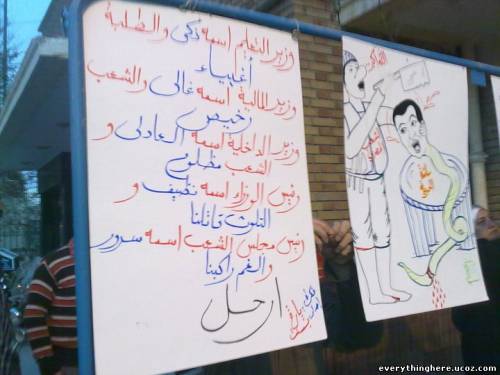 وزير التعليم اسمه زكى والطلبة
أغبياء
وزير المالية اسمه غالى والشعب
رخيص
وزير الداخلية اسمه العادلى و
الشعب مظلوم
رئيس الوزراء اسمه نظيف و
التلوث قاتلنا
رئيس مجلس الشعب اسمه سرور
والغم راكبنا
ارحل
everythinghere.ucoz.com